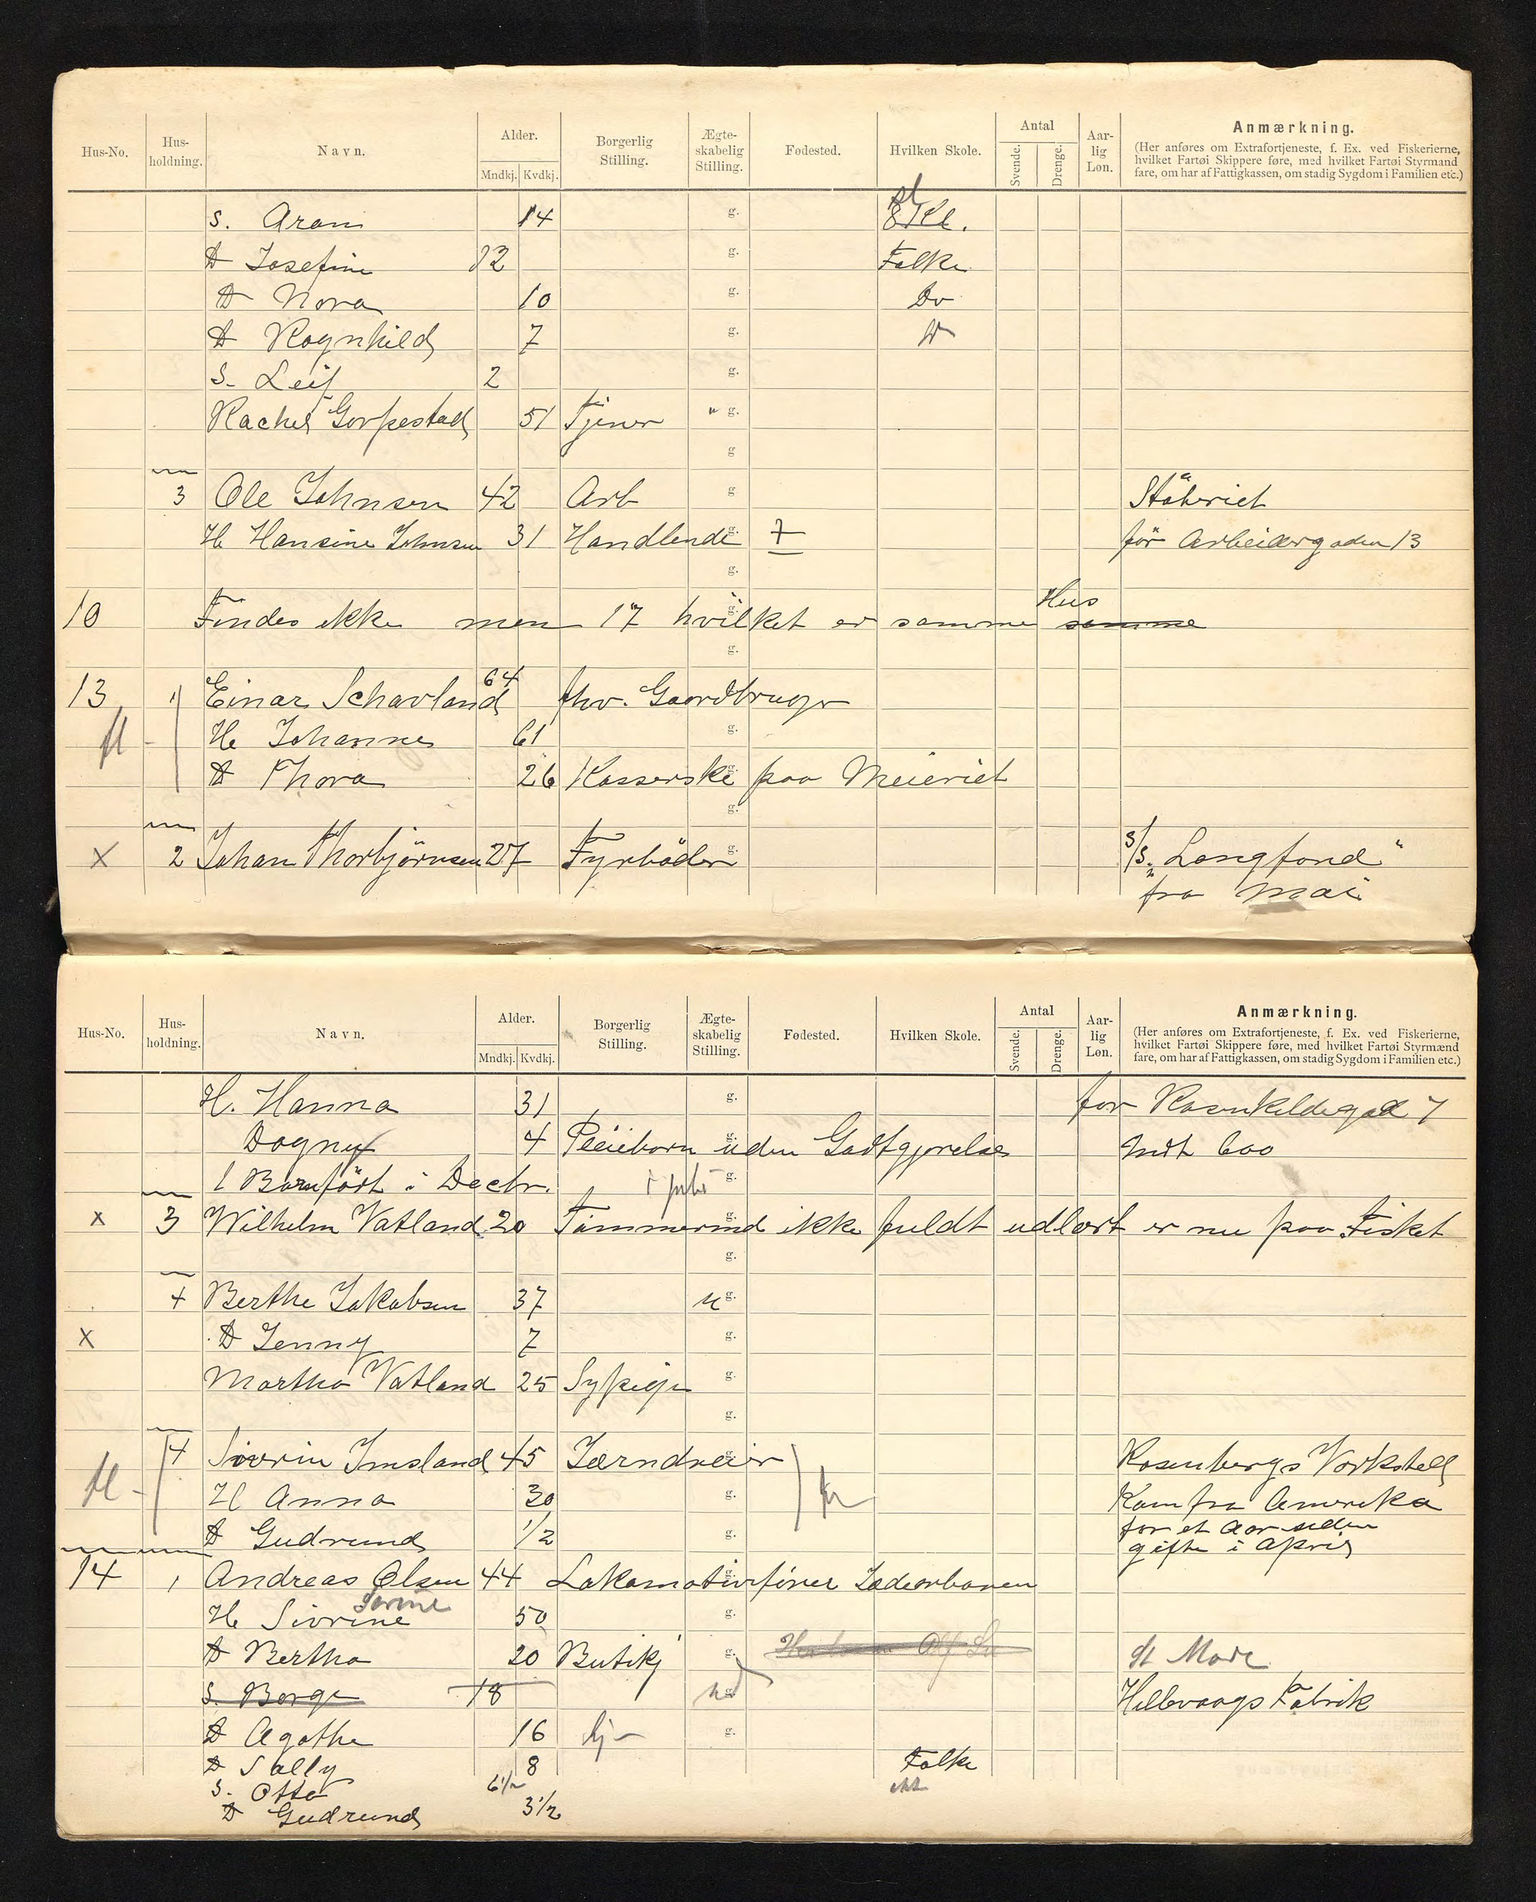 Hus-No. Hus-holdning. Navn. Alder. Mndkj. Kvdkj. Borgerlig Stilling. Ægte-skabelig Stilling. Fødested. Hvilken Skole. Antal Svende. Drenge. Aar-lig Løn. Anmærkning.
(Her anføres om Extrafortjeneste, f. Ex. ved Fiskerierne,
hvilket Fartøi Skippere føre, med hvilket Fartøi Styrmænd
fare, om har af Fattigkassen, om stadig Sygdom i Familien etc.)
S. Aron 14 g. 8 Kl.
D Josefine 12 g. Folke
D Nora 10 g. Do
D Ragnhild 7 g. Do
S. Leif 2 g.
Rachel Gorpestad 51 Tjener " g.
g
3 Ole Johnsen 42 Arb g Støberiet
H Hansine Johnsen 31 Handlende g. 7 før Arbeidergaden 13
g.
10 Findes ikke men 17 hvilket er samme Hus samme
g.
13 1 Einar Schavland 64 fhv. Gaardbruger
fl - H Johanne 61 g.
D Thora 26 Kasserske g. paa Meieriet
g.
x 2 Johan Thorbjørnsen 27 Fyrbøder g. S/S. "Langfond"
fra Mai
Hus-No. Hus-holdning. Navn. Alder. Mndkj. Kvdkj. Borgerlig Stilling. Ægte-skabelig Stilling. Fødested. Hvilken Skole. Antal Svende. Drenge. Aar-lig Løn. Anmærkning.
(Her anføres om Extrafortjeneste, f. Ex. ved Fiskerierne,
hvilket Fartøi Skippere føre, med hvilket Fartøi Styrmænd
fare, om har af Fattigkassen, om stadig Sygdom i Familien etc.)
H. Hanna 31 g. før Rosenkildegad 7
Dagny 4 Pleiebarn uden Godtgjørelse Indt 600
1 Barn født i Decbr. g.
x 3 Wilhelm Vatland 20 Tømmermd ikke fuldt udlært er nu paa Fisket
g.
4 Berthe Jakobsen 37 u g.
x D Jenny 7 g.
Martha Vatland 25 Sypige g.
g.
4 Sivrin Imsland 45 Jærndreier g. Rosenbergs Verksted
fl - H Anna 30 g. Kom fra Amerika
D Gudrund 1/2 g. for et Aar siden
gifte i April
14 1 Andreas Olsen 44 Lokomotivfører Jæderbanen
Sorine
H Sivrine 50 g.
D Bertha 20 Butikj g. St Mode
S. Børge 18 g. Hillevaags Fabrik
D Agathe 16 hj- g.
D Sally 8 Folke
S. Otto 6 1/2
D Gudrund 3 1/2